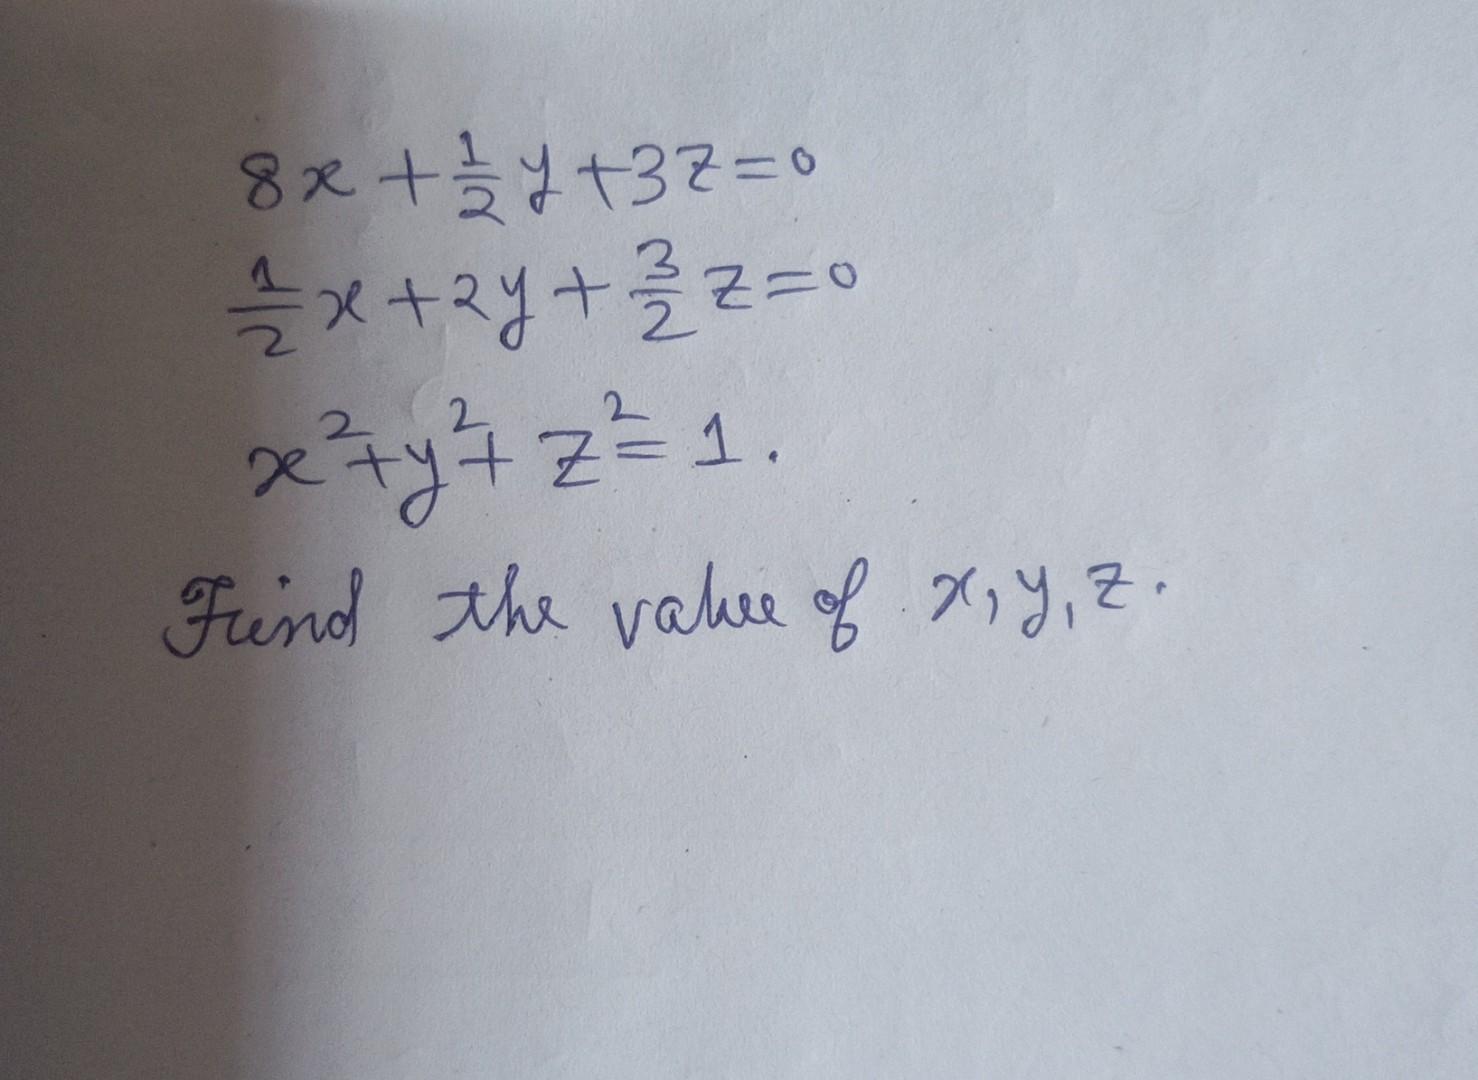 8x + 1/2 y + 3z = 0
1/2 x + 2y + 3/2 z = 0
x² + y² + z² = 1.
Find the value of x, y, z.